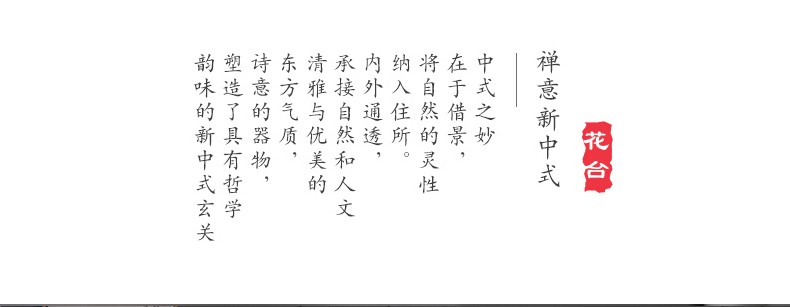 花台
禅意新中式
中式之妙
在于借景，
将自然的灵性
纳入住所。
内外通透，
承接自然和人文
清雅与优美的
东方气质，
诗意的器物，
塑造了具有哲学
韵味的新中式玄关